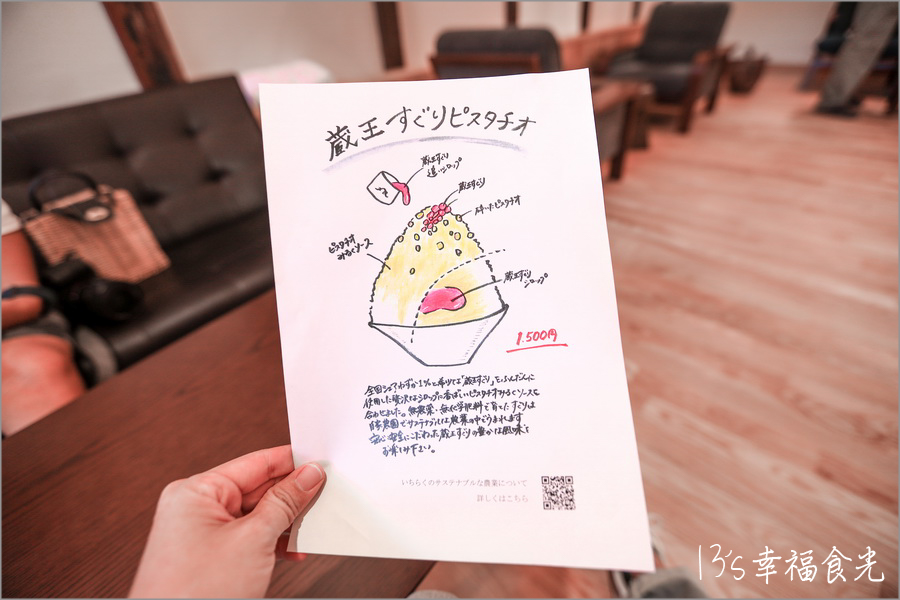 蔵王すぐりピスタチオ
蔵王すぐり
追いシロップ
蔵王すぐり
砕いたピスタチオ
ピスタチオ
みるくソース
蔵王すぐり
シロップ
1.500円
全国シェアわずか1%と希少な「蔵王すぐり」をふんだんに
使用した贅沢なシロップに香ばしいピスタチオみるくソースを
合わせました。無農薬・無化学肥料で育てたすぐりは
自家農園でサステナブルな農業の中でうまれます
安心安全にこだわった蔵王すぐりの豊かな風味を
お楽しみ下さい。
いちらくのサステナブルな農業について
詳しくはこちら
13's幸福食光